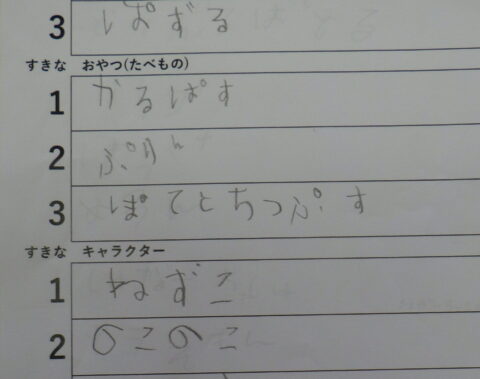 3 ぱずる
すきな おやつ(たべもの)
1 かるぱす
2 ぷりん
3 ぽてとちっぷす
すきな キャラクター
1 ねずこ
2 のこのこ